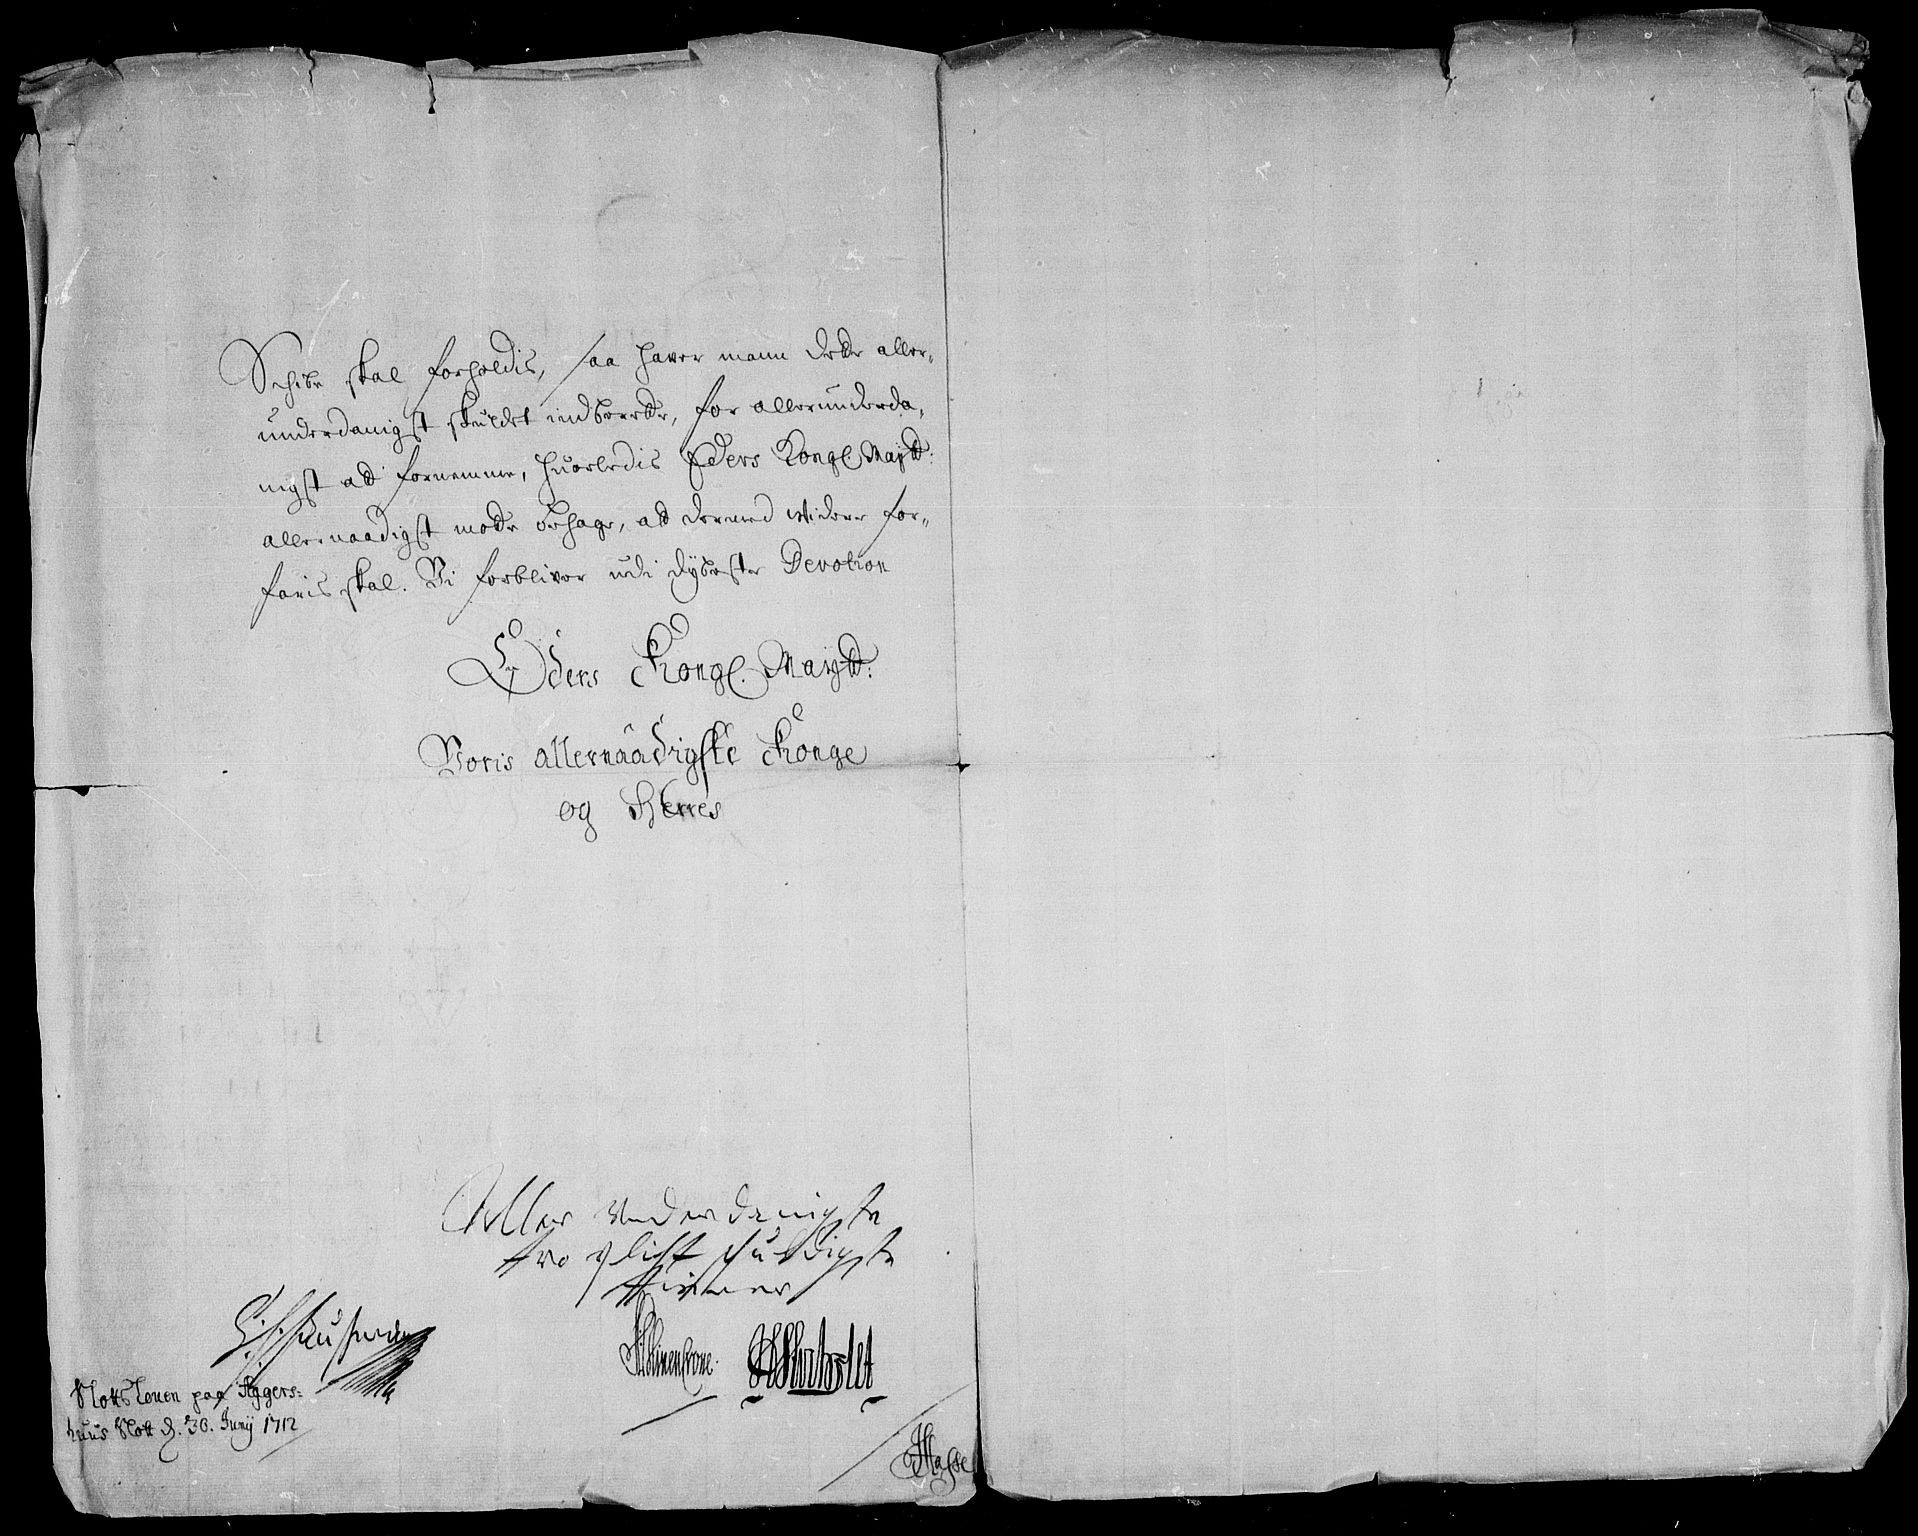 Schibe skal forholdis, saa haver mann dette aller-
underdanigst skuldet indberette, for allerunderda-
nigst att fornemme, huorledis Eders Kongl. Maytt:
allernaadigst motte behage, att dermed widere for-
faris skal. Vi forbliver udi dybeste Devotion
Eders Kongl. Maytt:
Voris allernaadigste Konge
og Herres
Aller underdanigste
tro pligt skuldigste
tienner
Slotts Louen paa Aggers-
huus Slott d. 30. Junij 1712